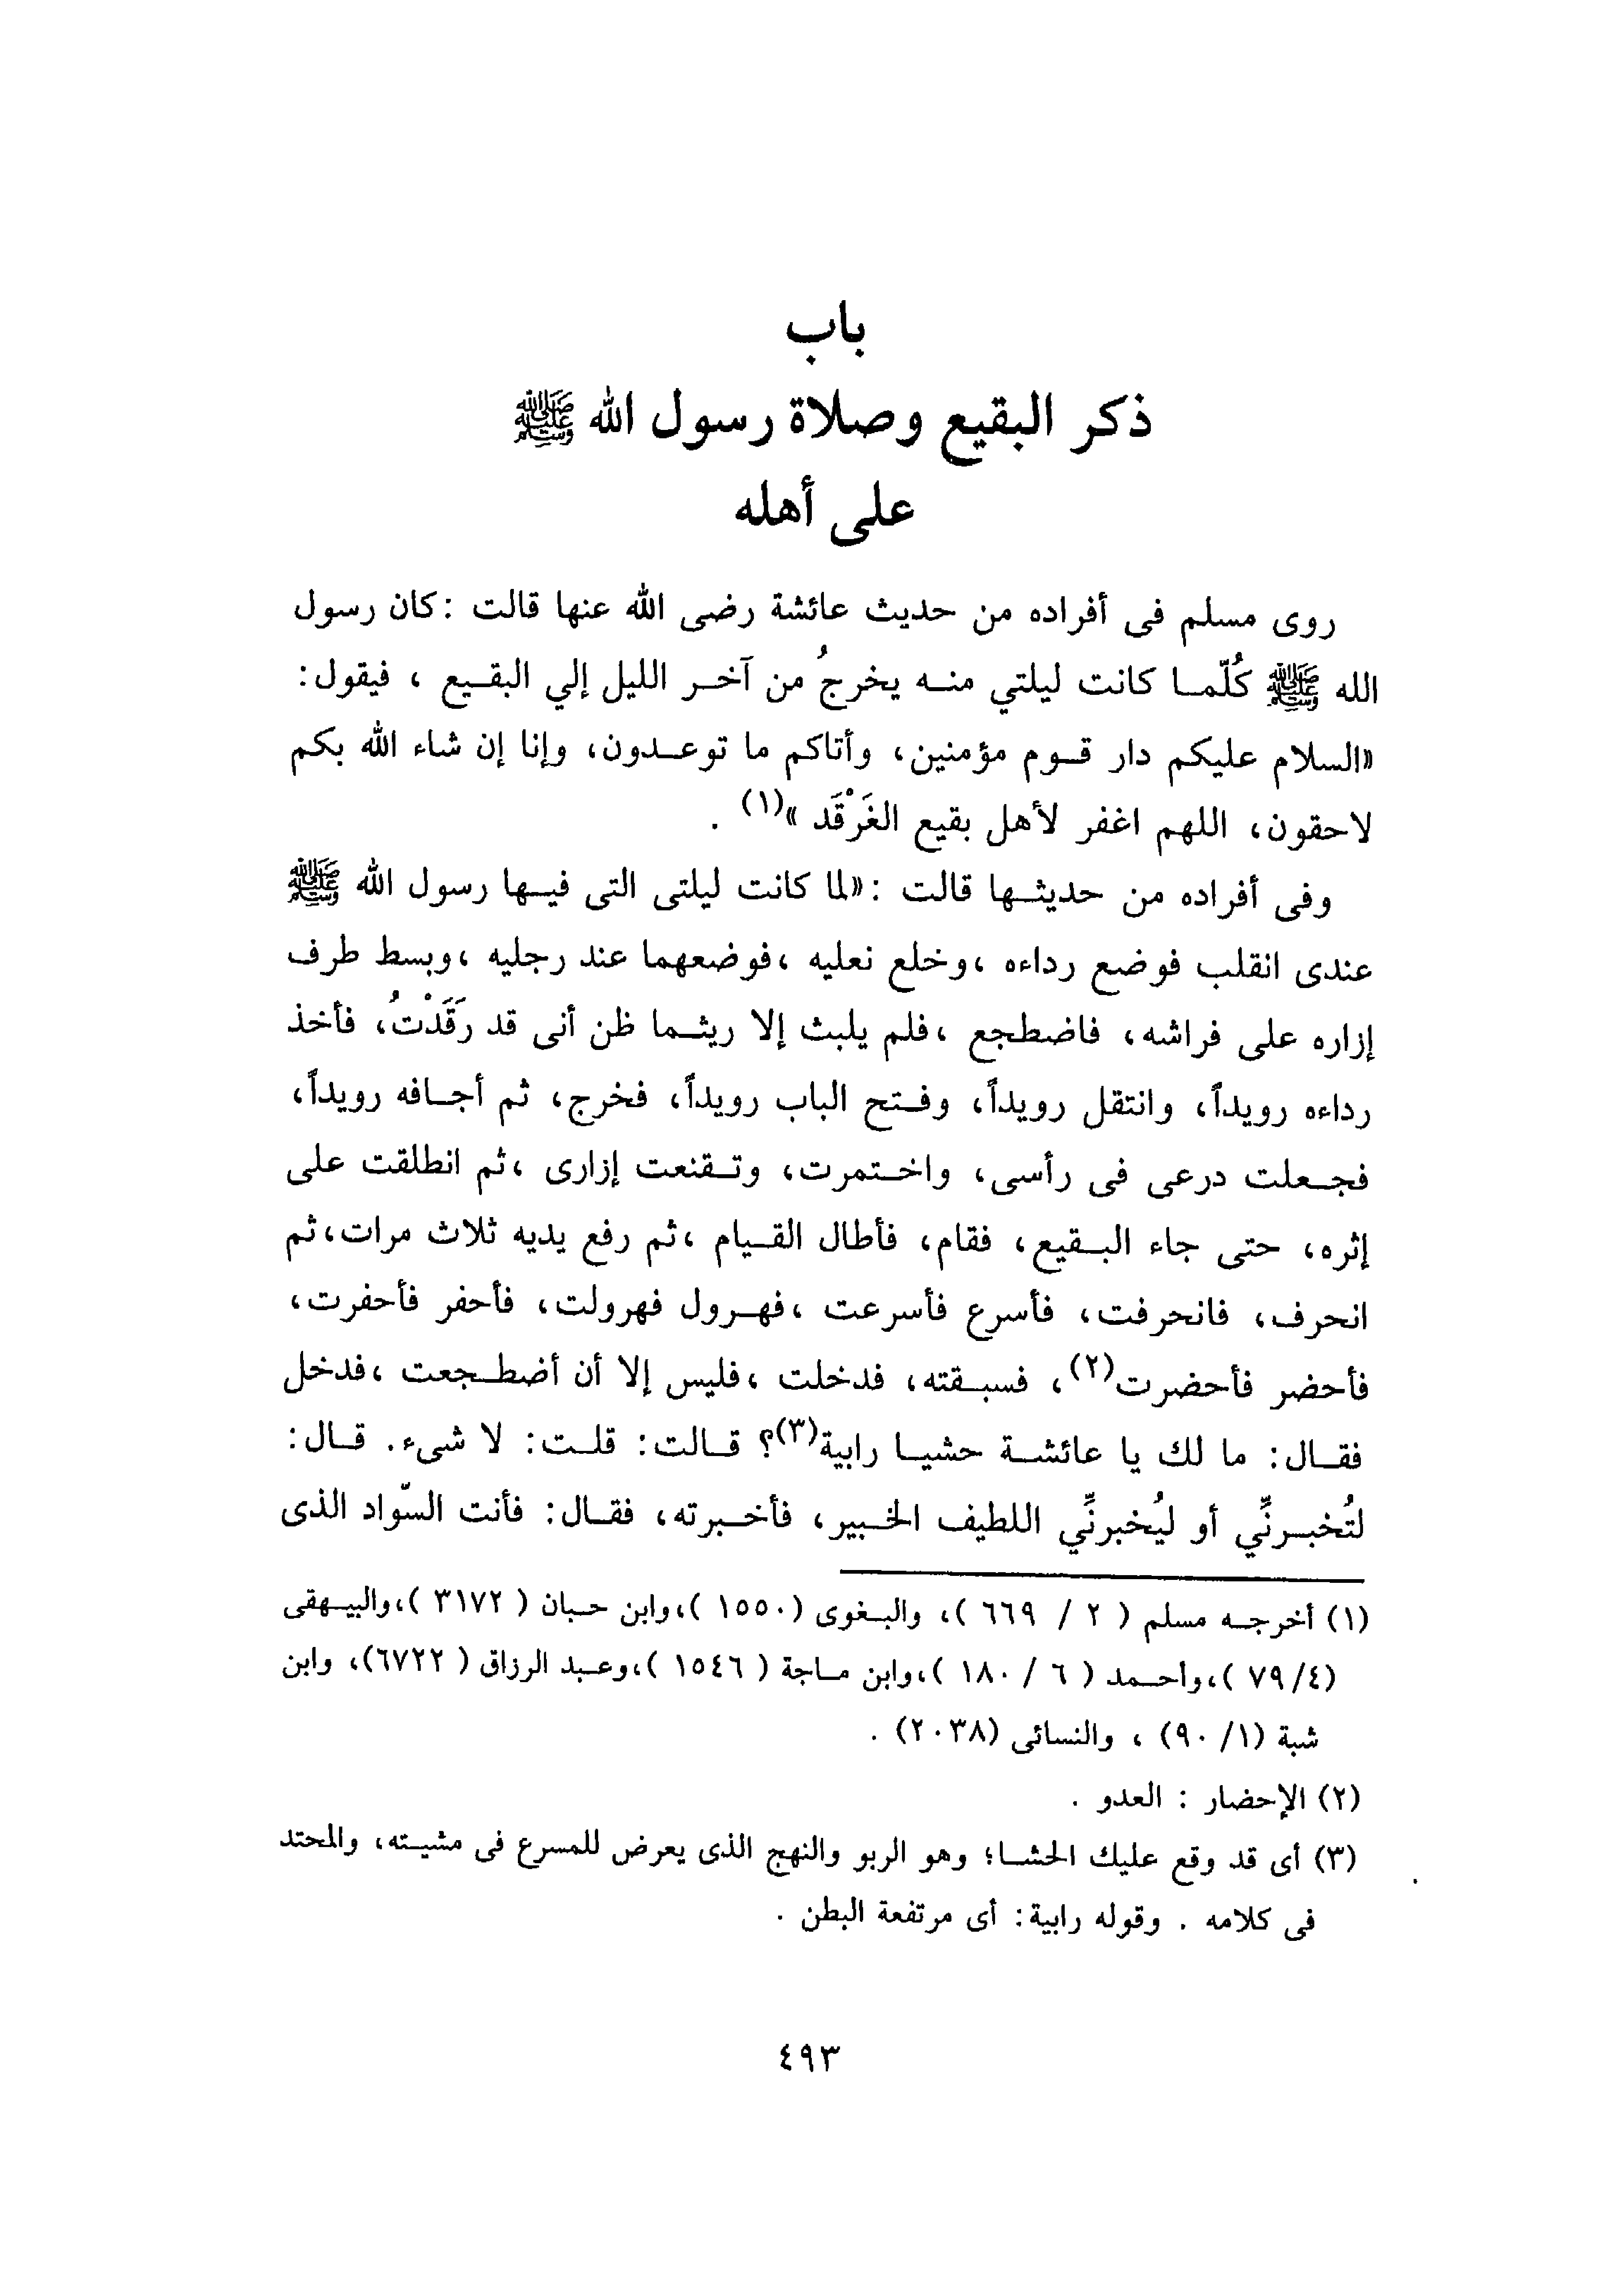 باب
ذكر البقيع وصلاة رسول الله ﷺ
على أهله
روى مسلم فى أفراده من حديث عائشة رضى الله عنها قالت : كان رسول
الله ﷺ كُلّما كانت ليلتي منه يخرجُ من آخر الليل إلي البقيع ، فيقول :
«السلام عليكم دار قوم مؤمنين، وأتاكم ما توعدون، وإنا إن شاء الله بكم
لاحقون، اللهم اغفر لأهل بقيع الغَرْقَد »(١) .
وفى أفراده من حديثها قالت : «لما كانت ليلتى التى فيها رسول الله ﷺ
عندى انقلب فوضع رداءه ،وخلع نعليه ،فوضعهما عند رجليه ،وبسط طرف
إزاره على فراشه، فاضطجع ،فلم يلبث إلا ريثما ظن أنى قد رَقَدْتُ، فأخذ
رداءه رويداً، وانتقل رويداً، وفتح الباب رويداً، فخرج، ثم أجافه رويداً،
فجعلت درعى فى رأسى، واختمرت، وتقنعت إزارى ،ثم انطلقت على
إثره، حتى جاء البقيع، فقام، فأطال القيام ،ثم رفع يديه ثلاث مرات،ثم
انحرف، فانحرفت، فأسرع فأسرعت ،فهرول فهرولت، فأحفر فأحفرت،
فأحضر فأحضرت(٢)، فسبقته، فدخلت ،فليس إلا أن أضطجعت ،فدخل
فقال: ما لك يا عائشة حشيا رابية(٣)؟ قالت: قلت: لا شىء. قال:
لتُخبرنِّي أو ليُخبرنِّي اللطيف الخبير، فأخبرته، فقال: فأنت السّواد الذى
(١) أخرجه مسلم ( ٢ / ٦٦٩ )، والبغوى (١٥٥٠ )،وابن حبان ( ٣١٧٢ )،والبيهقى
(٧٩/٤ )،وأحمد ( ٦ / ١٨٠ )،وابن ماجة ( ١٥٤٦ )،وعبد الرزاق ( ٦٧٢٢)، وابن
شبة (١/ ٩٠) ، والنسائى (٢٠٣٨) .
(٢) الإحضار : العدو .
(٣) أى قد وقع عليك الحشا؛ وهو الربو والنهج الذى يعرض للمسرع فى مشيته، والمحتد
فى كلامه . وقوله رابية: أى مرتفعة البطن .
٤٩٣